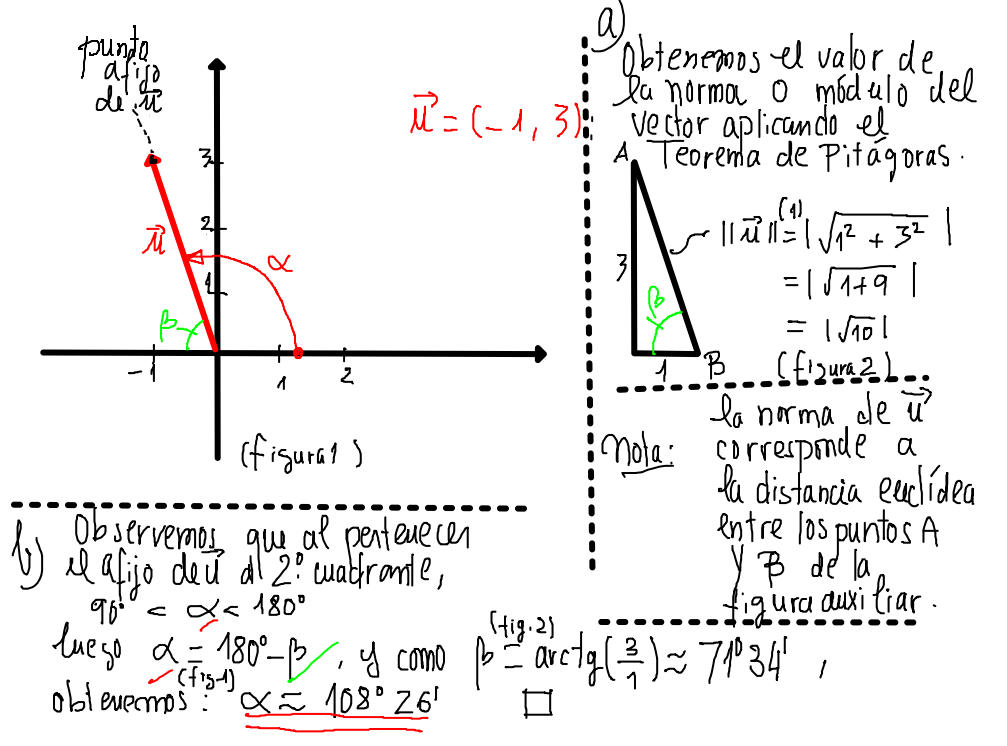 punto
afijo
de u⃗
u⃗ = (-1, 3)
3
2
1
u⃗
α
β
-1
1
2
(figura 1)
a)
Obtenemos el valor de
la norma o módulo del
vector aplicando el
Teorema de Pitágoras.
A
3
β
1
B
||u⃗|| (1)= |√1² + 3²|
= |√1+9|
= |√10|
(figura 2)
Nota:
la norma de u⃗
corresponde a
la distancia euclídea
entre los puntos A
y B de la
figura auxiliar.
b) Observemos que al pertenecer
el afijo de u⃗ al 2º cuadrante,
90º < α < 180º
luego α = (fig 1) 180º-β, y como β = (fig.2) arctg(3/1) ≈ 71º34',
obtenemos: α ≈ 108º 26' □